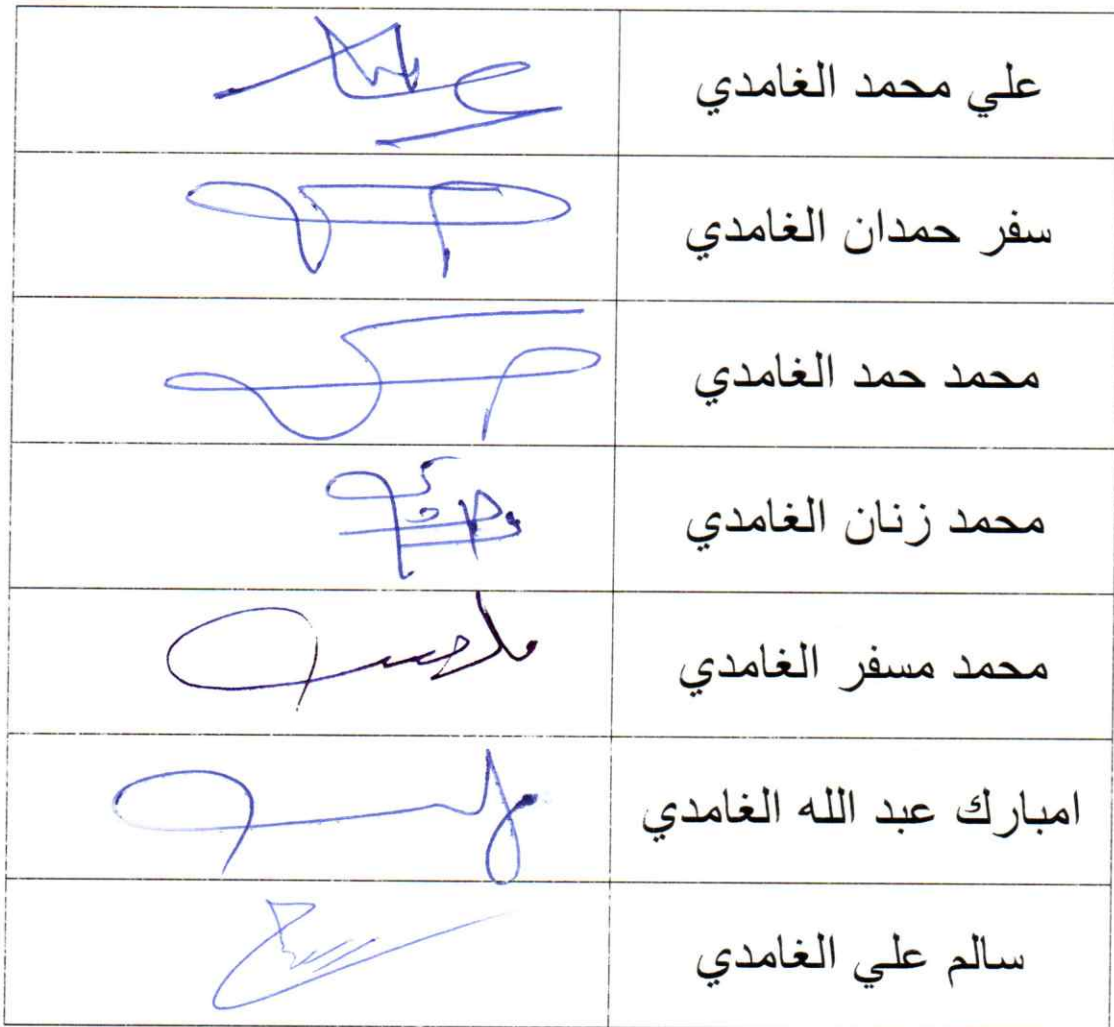 علي محمد الغامدي
سفر حمدان الغامدي
محمد حمد الغامدي
محمد زنان الغامدي
محمد مسفر الغامدي
امبارك عبد الله الغامدي
سالم علي الغامدي